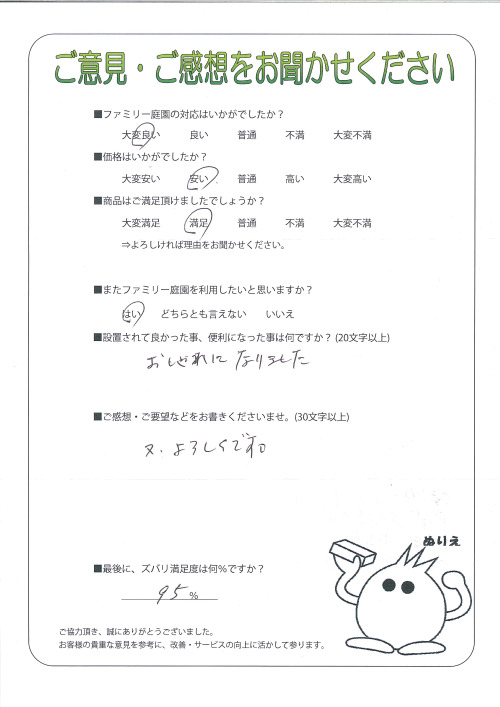 ご意見・ご感想をお聞かせください
■ファミリー庭園の対応はいかがでしたか？
大変良い 良い 普通 不満 大変不満
■価格はいかがでしたか？
大変安い 安い 普通 高い 大変高い
■商品はご満足頂けましたでしょうか？
大変満足 満足 普通 不満 大変不満
⇒よろしければ理由をお聞かせください。
■またファミリー庭園を利用したいと思いますか？
はい どちらとも言えない いいえ
■設置されて良かった事、便利になった事は何ですか？(20文字以上)
おしゃれに なりました
■ご感想・ご要望などをお書きくださいませ。(30文字以上)
又、よろしくです。
ぬりえ
■最後に、ズバリ満足度は何％ですか？
95 %
ご協力頂き、誠にありがとうございました。
お客様の貴重な意見を参考に、改善・サービスの向上に活かして参ります。